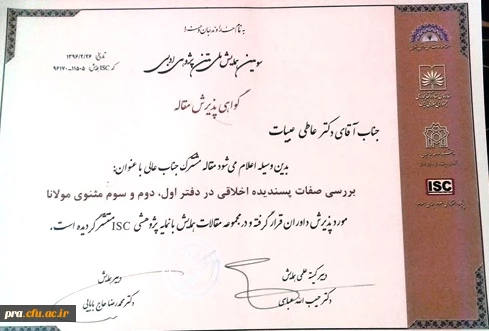 به نام خداوند جان و خرد
سومین همایش ملی متن پژوهی ادبی
تاریخ: ۱۳۹۶/۲/۲۶
کد ISC همایش: ۱۱۵۰۵-۹۶۱۷۰
گواهی پذیرش مقاله
جناب آقای دکتر عاطی عبیات
بدین وسیله اعلام می‌شود مقاله مشترک جناب عالی با عنوان:
بررسی صفات پسندیده اخلاقی در دفتر اول، دوم و سوم مثنوی مولانا
مورد پذیرش داوران قرار گرفته و در مجموعه مقالات همایش با نمایه پژوهشی ISC منتشر گردیده است.
دبیر کمیته علمی همایش
دکتر حبیب الله عباسی
دبیر همایش
دکتر محمدرضا حاج بابایی
ISC
pra.cfu.ac.ir